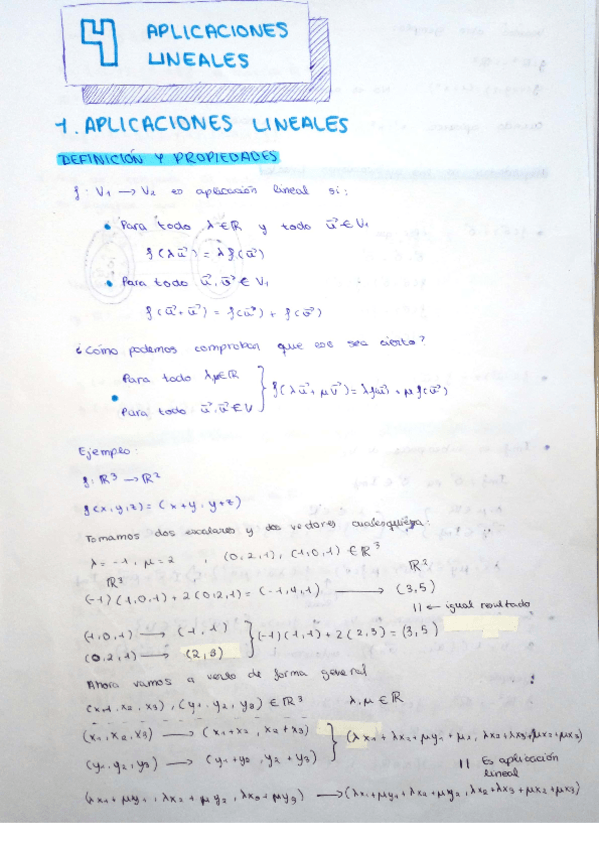 4 APLICACIONES
LINEALES
1. APLICACIONES LINEALES
DEFINICIÓN Y PROPIEDADES
f: V₁ → V₂ es aplicación lineal si:
• Para todo λ∈ℝ y todo u⃗ ∈ V₁
f(λu⃗) = λf(u⃗)
• Para todo u⃗, v⃗ ∈ V₁
f(u⃗+u⃗) = f(u⃗) + f(v⃗)
¿Cómo podemos comprobar que eso sea cierto?
Para todo λ,μ∈ℝ
• } f(λu⃗ + μv⃗) = λf(u⃗) + μf(v⃗)
Para todo u⃗,v⃗∈V
Ejemplo:
f: ℝ³ → ℝ²
f(x,y,z) = (x+y, y+z)
Tomamos dos escalares y dos vectores cualesquiera:
λ = -1, μ = 2 , (0,2,1), (1,0,1) ∈ ℝ³
ℝ³ ℝ²
(-1)(1,0,1) + 2(0,2,1) = (-1,4,1) → (3,5)
|| ← igual resultado
(1,0,1) → (1,1) } (-1)(1,1) + 2(2,3) = (3,5)
(0,2,1) → (2,3)
Ahora vamos a verlo de forma general
(x₁, x₂, x₃), (y₁, y₂, y₃) ∈ ℝ³ λ,μ ∈ ℝ
(x₁, x₂, x₃) → (x₁+x₂, x₂+x₃) }
(y₁, y₂, y₃) → (y₁+y₂, y₂+y₃)
|| Es aplicación
lineal
(λx₁+μy₁, λx₂+μy₂, λx₃+μy₃) →